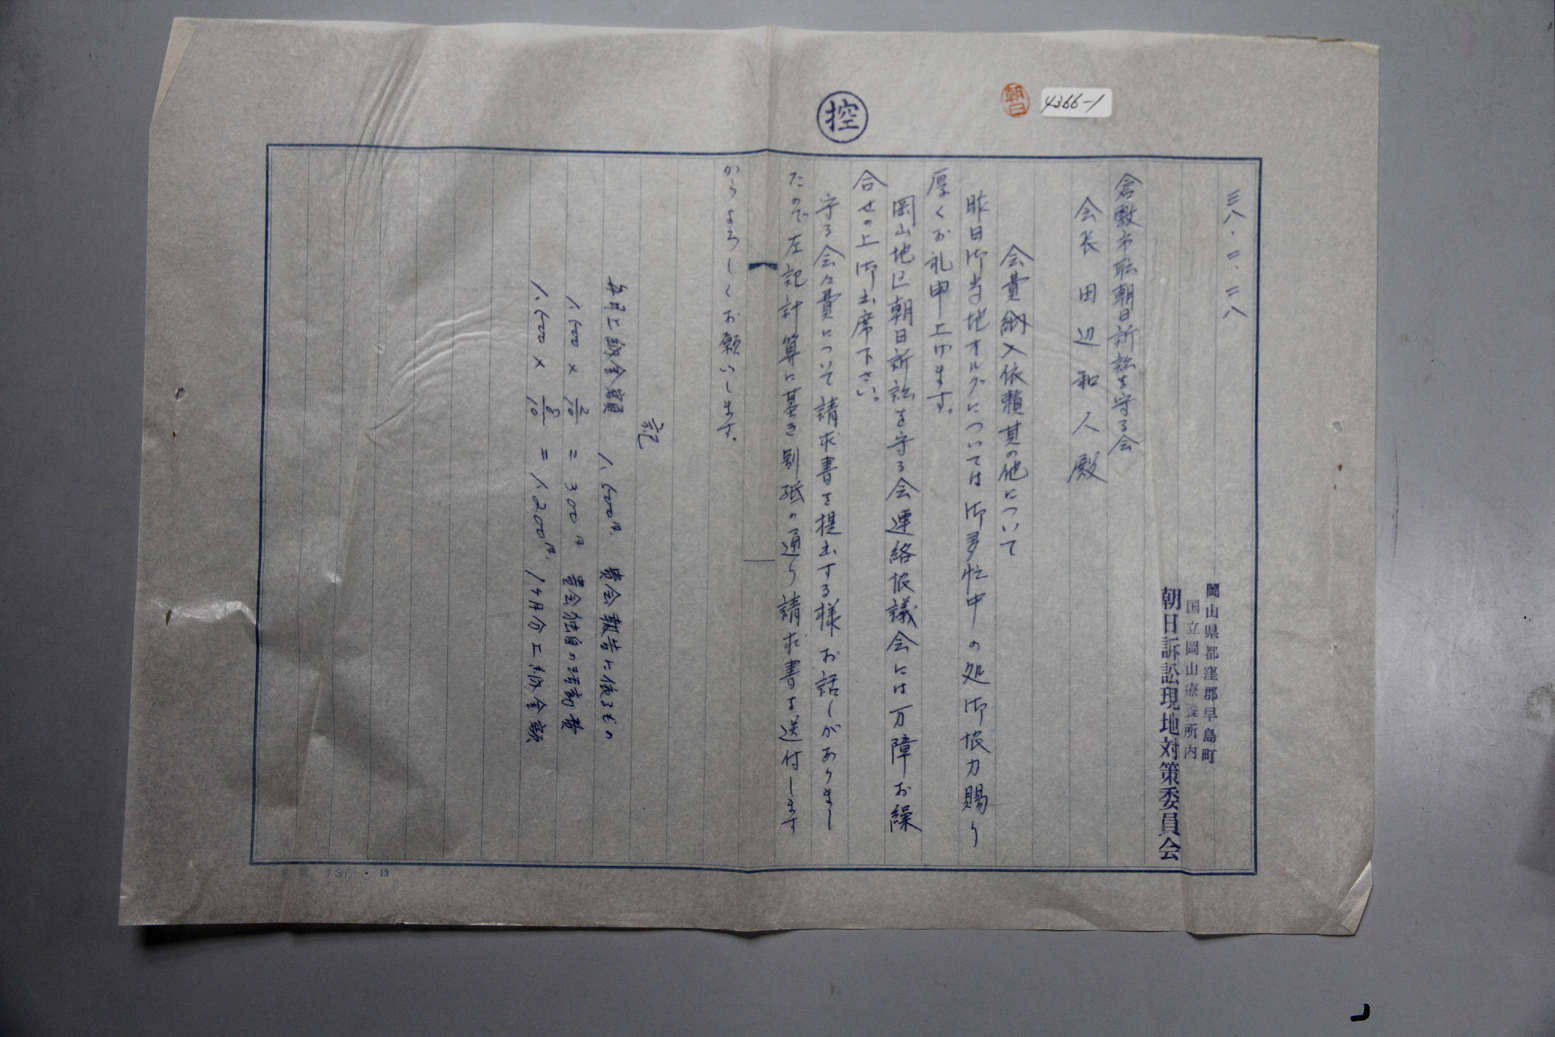 4366-1
朝日
控
三八.二.二八
岡山県都窪郡早島町
国立岡山療養所内
朝日訴訟現地対策委員会
倉敷市職朝日訴訟を守る会
会長 田辺和人殿
会費納入依頼其の他について
昨日御当地オルグについては御多忙中の処御協力賜り
厚くお礼申上げます。
岡山地区朝日訴訟を守る会連絡協議会には万障お繰
合せの上御出席下さい。
守る会々費について請求書を提出する様お話しがありまし
たので左記計算に基き別紙の通り請求書を送付します
からよろしくお願いします。
記
毎月上納金額 1,500円 貴会報告に依るもの
1,500 × 2/10 = 300円 貴会独自の活動費
1,500 × 8/10 = 1,200円 1ヶ月分上納金額